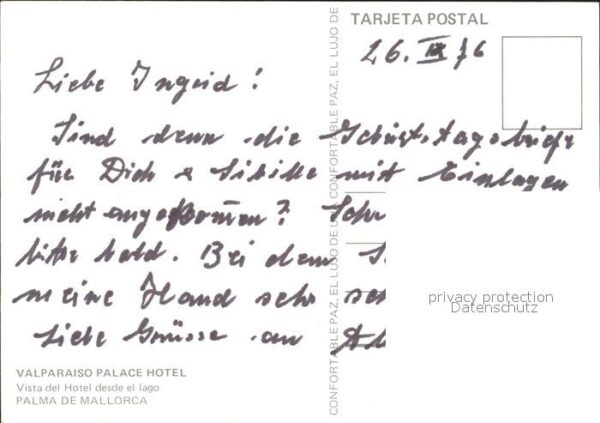 TARJETA POSTAL
26. IX 76
Liebe Ingrid!
Sind denn die Geburtstagsbriefe
für Dich & Sibille mit Einlagen
nicht angekommen? Schr
bitte bald. Bei dem S
meine Hand sehr
Liebe Grüsse an
VALPARAISO PALACE HOTEL
Vista del Hotel desde el lago
PALMA DE MALLORCA
CONFORTABLE PAZ. EL LUJO DE UNA CONFORTABLE PAZ. EL LUJO DE
privacy protection
Datenschutz